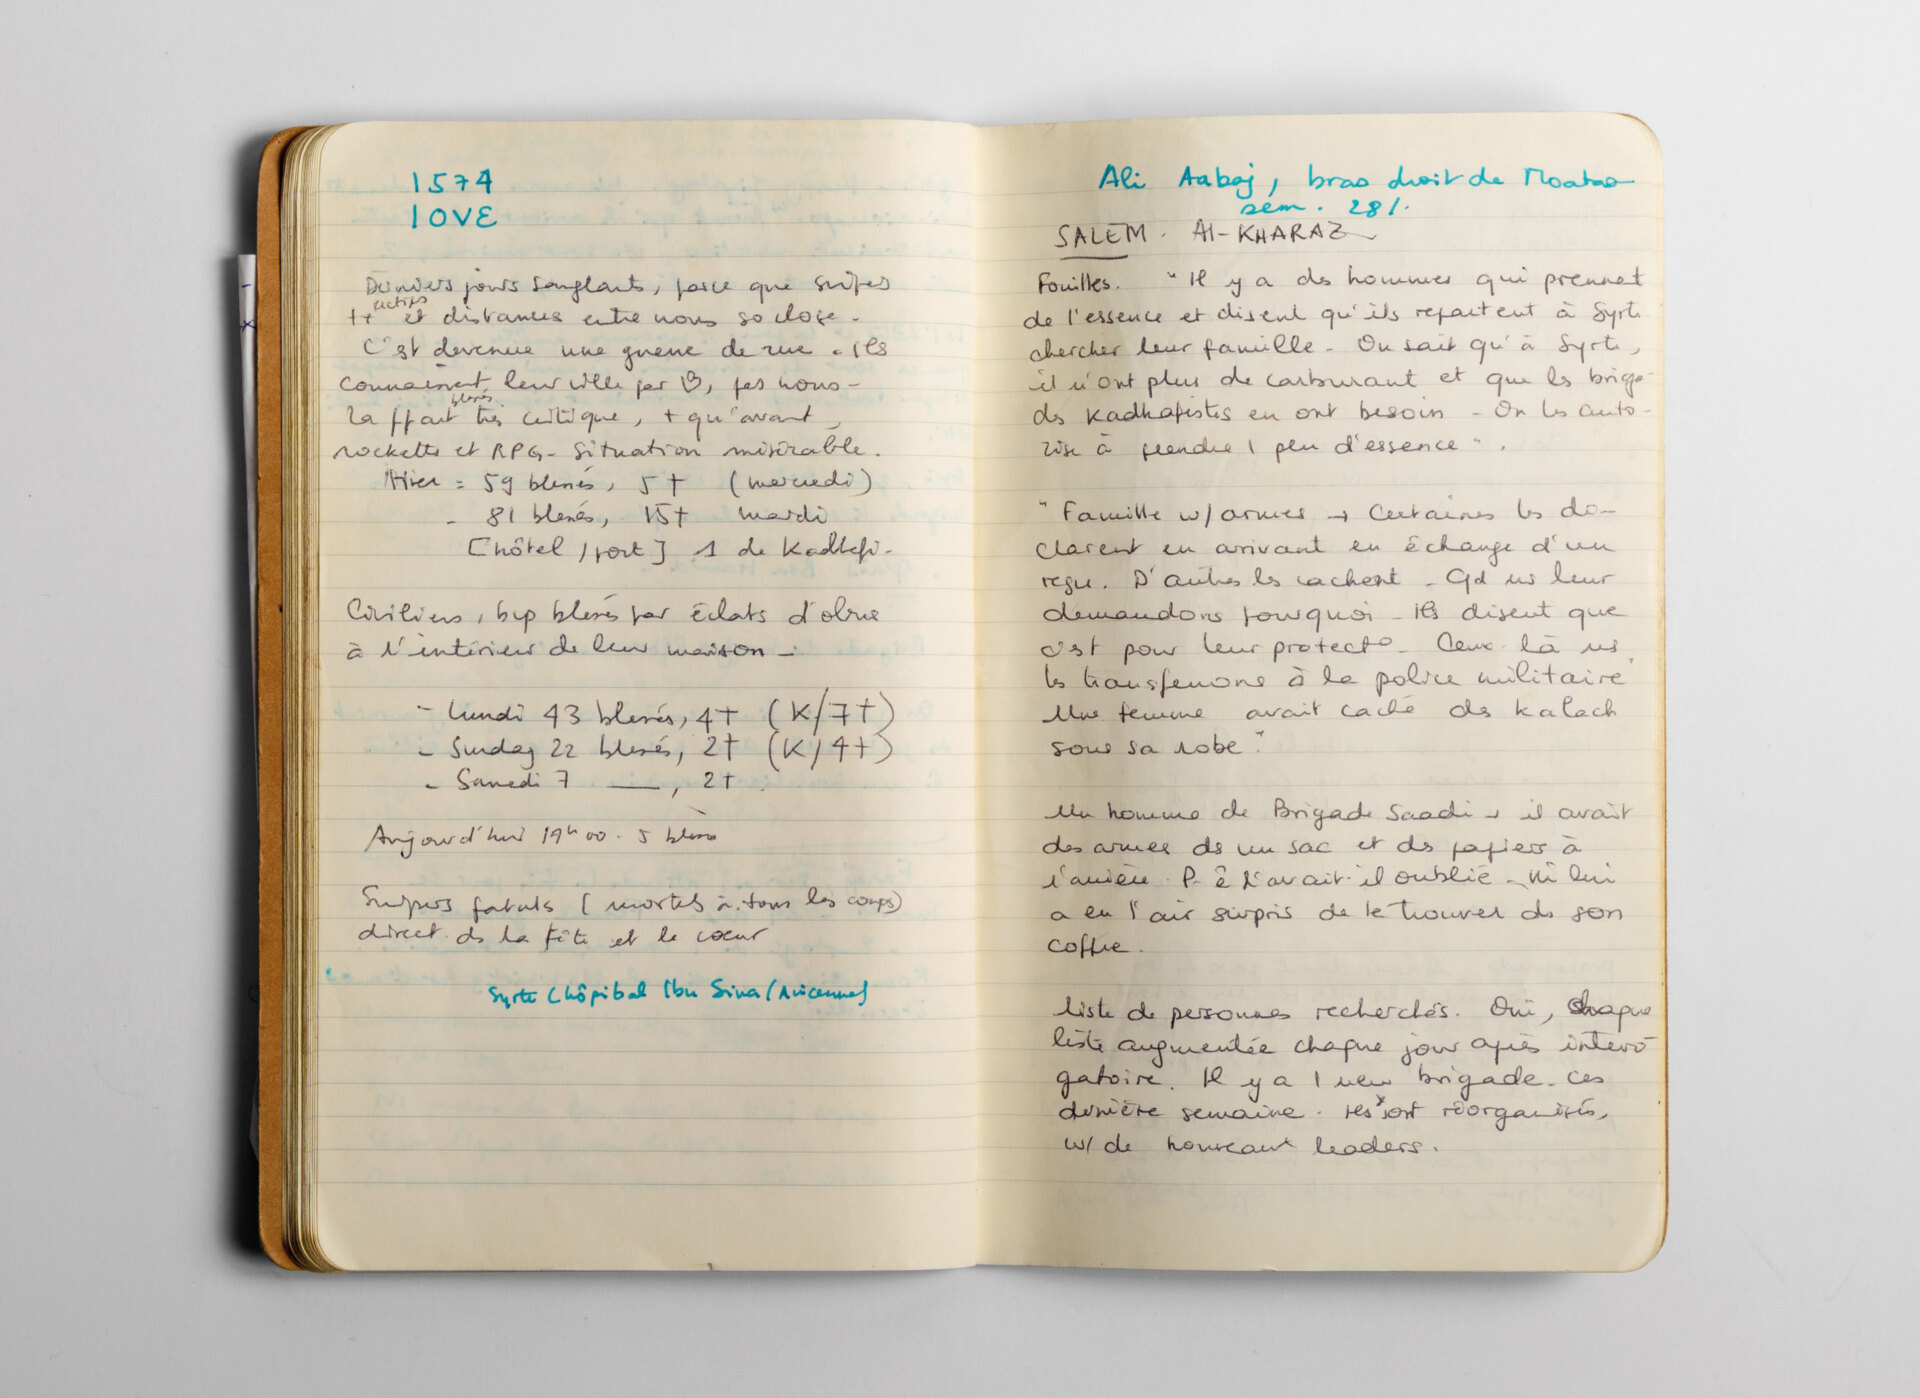 1574
LOVE
Derniers jours sanglants, parce que snipers
actifs
++ et distances entre nous so close.
C'est devenue une guerre de rue. Ils
connaissent leur ville par ♡, pas nous-
blessés
La ppart très critique, + qu'avant,
rockette et RPG- Situation misérable.
Hier = 59 blessés, 5† (mercredi)
- 81 blessés, 15† mardi
[hôtel/port] 1 de Kadhafi-
Civiliens, bcp blessés par éclats d'obus
à l'intérieur de leur maison-
- Lundi 43 blessés, 4† (K/7†)
- Sunday 22 blessés, 2† (K/4†)
- Samedi 7 —, 2†
Aujourd'hui 19h00. 5 blessés
Snipers fatals (mortels à tous les coups)
direct ds la tête et le cœur
Syrte (hôpital Ibn Sina/Avicenne)
Ali Aabaj, bras droit de Moatas
sem. 281.
SALEM. Al-KHARAZ
Fouilles. "Il y a des hommes qui prennent
de l'essence et disent qu'ils repartent à Syrte
chercher leur famille- On sait qu'à Syrte,
il n'ont plus de carburant et que les briga-
des Kadhafistes en ont besoin - On les auto-
rise à prendre 1 peu d'essence".
"Famille w/armes → Certaines les dé-
clarent en arrivant en échange d'un
reçu. D'autres les cachent- Qd ns leur
demandons pourquoi- Ils disent que
c'est pour leur protect°- Ceux-là ns
les transferrons à la police militaire
Une femme avait caché des kalach
sous sa robe"
Un homme de Brigade Saadi → il avait
des armes ds un sac et des papiers à
l'arrière. P-ê l'avait-il oublié- lui
a eu l'air surpris de le trouver ds son
coffre.
Liste de personnes recherchés. Oui, chaque
liste augmentée chaque jour après intero-
gatoire. Il y a 1 new brigade- ces
dernière semaine. Ils s'sont réorganisés,
w/ de nouveaux leaders.